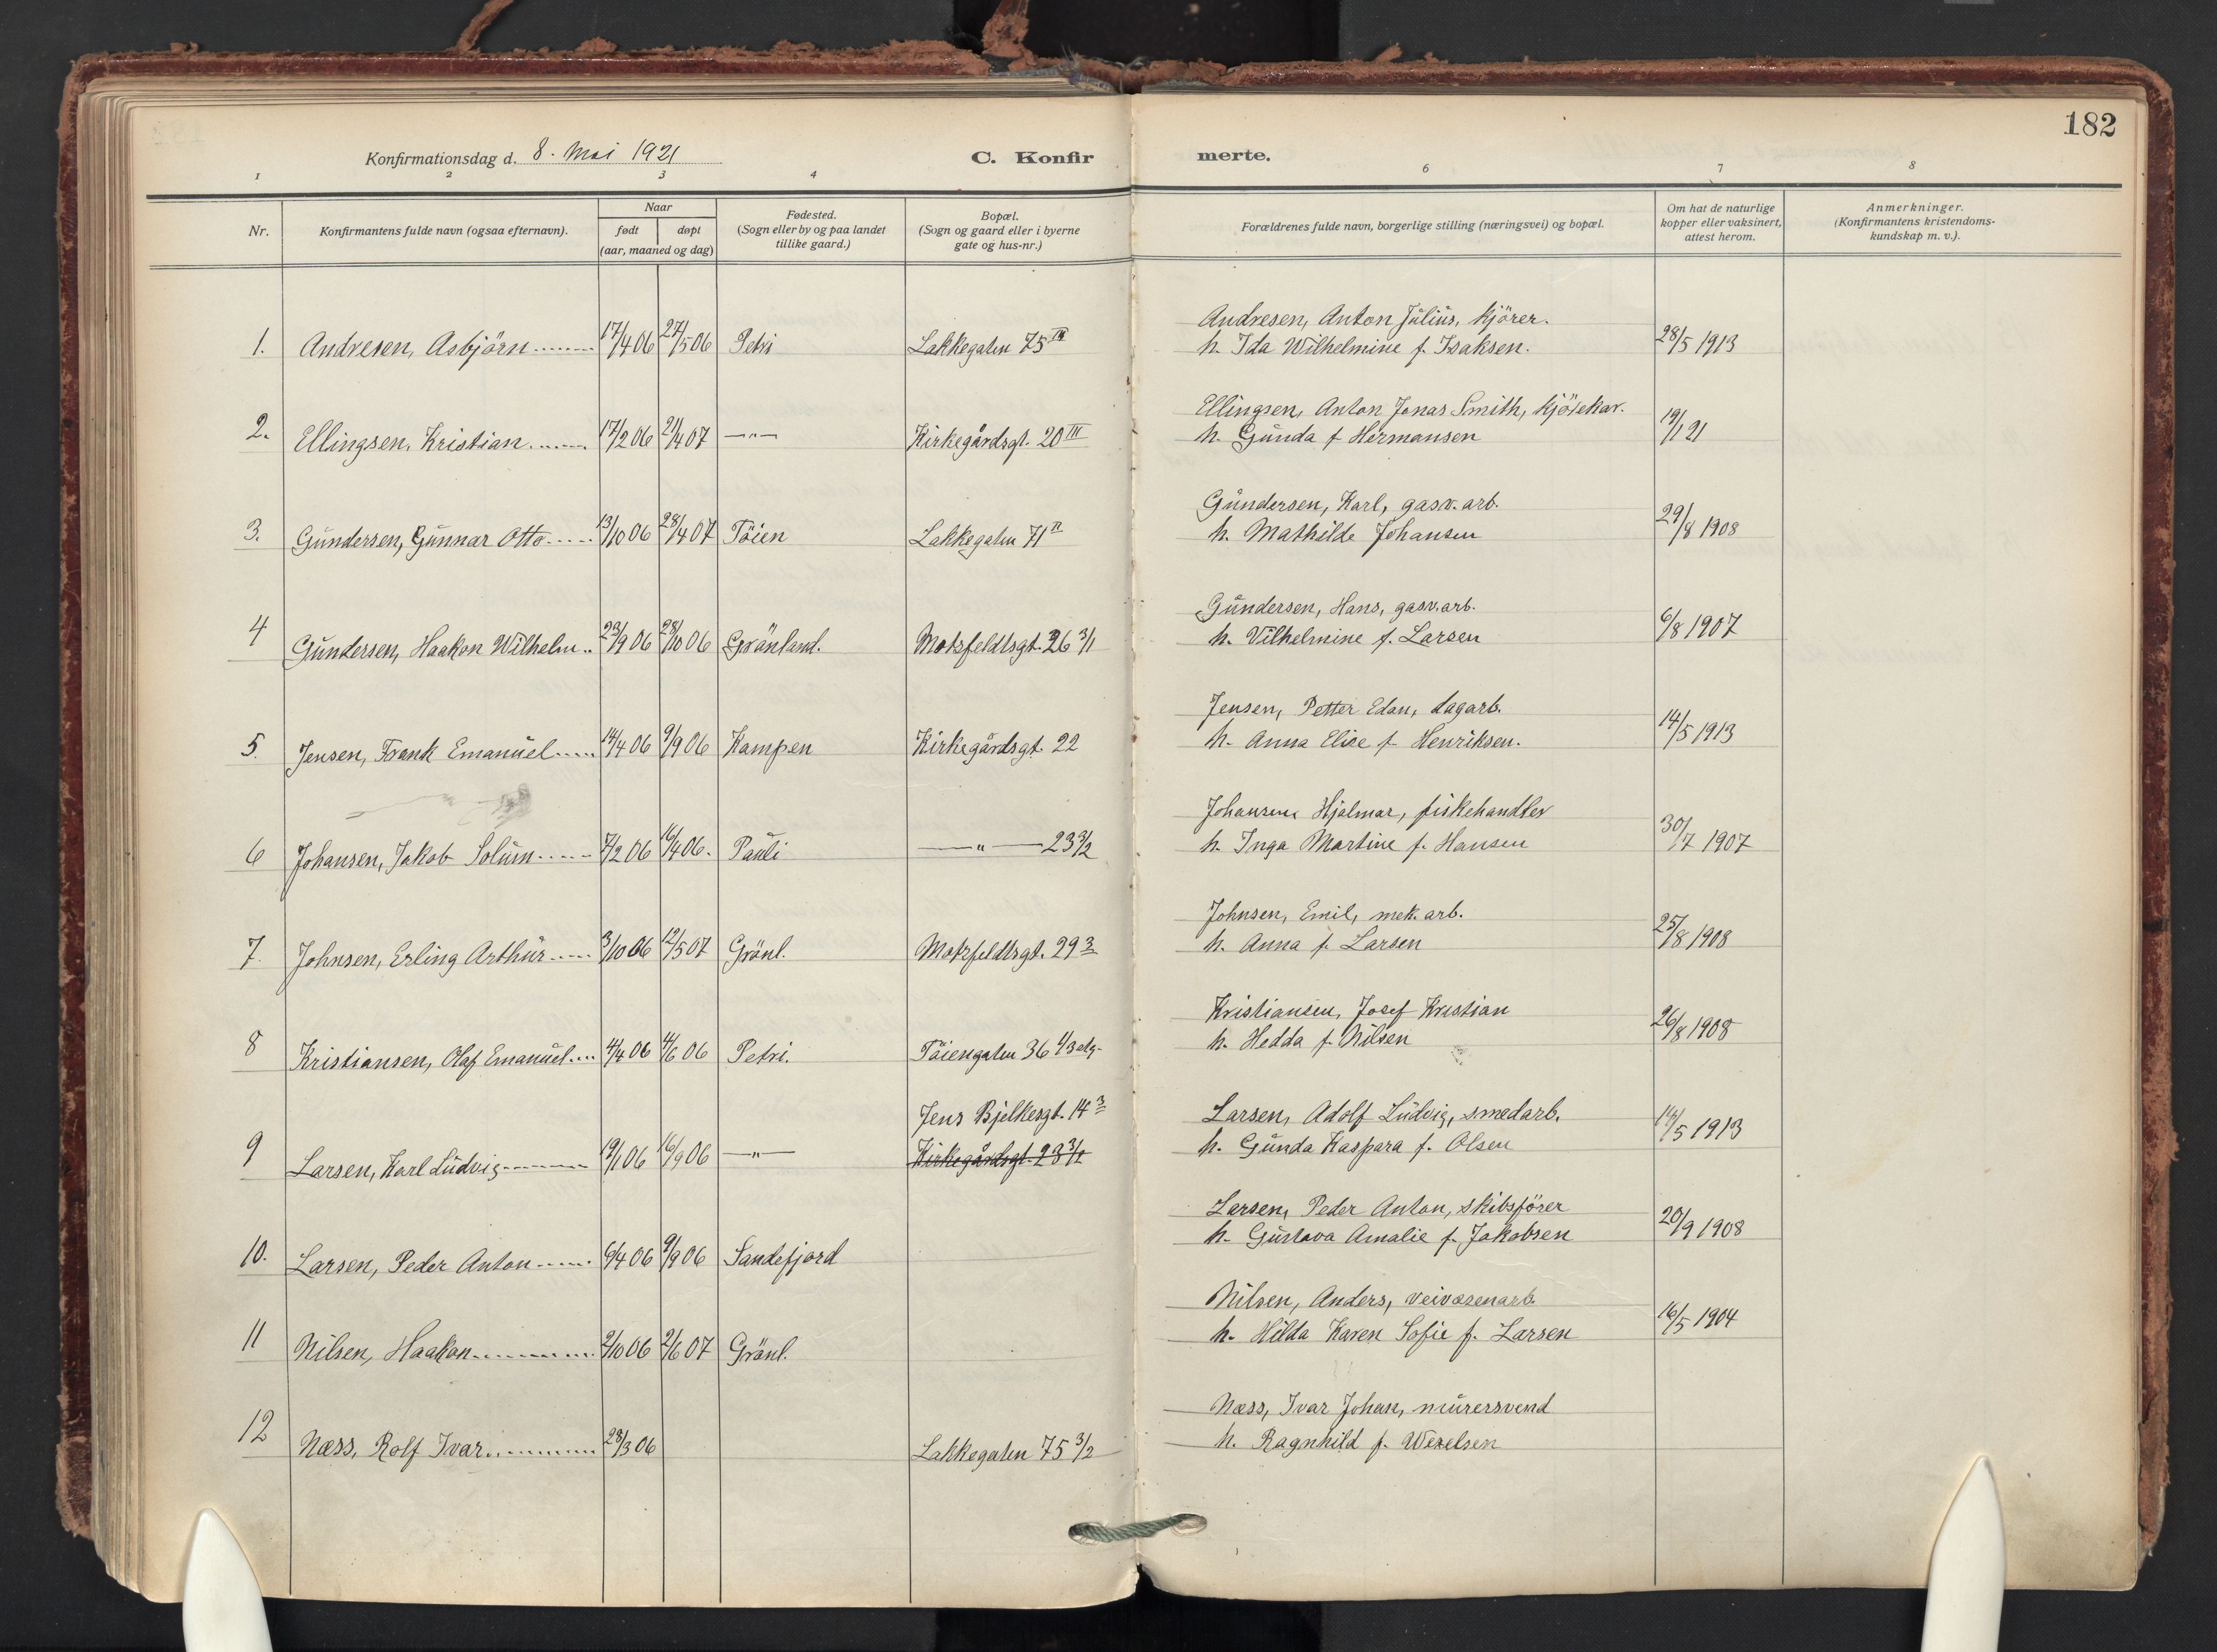 182
Konfirmationsdag d. 8. Mai 1921
C. Konfir
merte.
1 2 3 4 6 7 8
Nr.
Konfirmantens fulde navn (ogsaa efternavn).
Naar
født døpt
(aar, maaned og dag)
Fødested.
(Sogn eller by og paa landet
tillike gaard.)
Bopæl.
(Sogn og gaard eller i byerne
gate og hus-nr.)
Forældrenes fulde navn, borgerlige stilling (næringsvei) og bopæl.
Om hat de naturlige
kopper eller vaksinert,
attest herom.
Anmerkninger.
(Konfirmantens kristendoms-
kundskap m. v.).
Andresen, Anton Julius, kjörer.
1. Andresen, Asbjörn 17/4 06 27/5 06 Petri Lakkegaten 75 III h. Ida Wilhelmine f. Isaksen. 28/5 1913
Ellingsen, Anton Jonas Smith, kjörekar.
2. Ellingsen, Kristian 17/2 06 21/4 07 —"— Kirkegårdsgt. 20 III h. Gunda f Hermansen 19/1 21
Gundersen, Karl, gasv. arb.
3. Gundersen, Gunnar Otto 13/10 06 28/4 07 Töien Lakkegaten 71 II h. Mathilde Johansen 29/8 1908
Gundersen, Hans, gasv. arb.
4 Gundersen, Haakon Wilhelm 23/9 06 28/10 06 Grönland. Motzfeldtsgt. 26 3/1 h. Vilhelmine f. Larsen 6/8 1907
Jensen, Petter Edan, dagarb.
5. Jensen, Frank Emanuel 14/4 06 9/9 06 Kampen Kirkegårdsgt. 22 h. Anna Elise f. Henriksen. 14/5 1913
Johansen, Hjalmar, fiskehandler
6 Johansen, Jakob Solum 7/2 06 16/4 06. Pauli —"— 23 3/2 h. Inga Martine f. Hansen 30/7 1907
Johnsen, Emil, mek. arb.
7. Johnsen, Erling Arthur 3/10 06 12/5 07 Grönl. Motzfeldtsgt. 29 3 h. Anna f. Larsen 25/8 1908
Kristiansen, Josef Kristian
8 Kristiansen, Olaf Emanuel 4/4 06 4/6 06 Petri. Töiengaten 36 4/3 etg. h. Hedda f. Nilsen 26/8 1908
Jens Bjelkesgt. 14 3 Larsen, Adolf Ludvig, smedarb.
9 Larsen, Karl Ludvig 19/1 06 16/9 06 —"— Kirkegårdsgt. 23 3/2 h. Gunda Kaspara f. Olsen 14/5 1913
Larsen, Peder Anton, skibsförer
10. Larsen, Peder Anton 6/4 06 9/9 06 Sandefjord h. Gustava Amalie f. Jakobsen 20/9 1908
Nilsen, Anders, veivæsenarb.
11 Nilsen, Haakon 2/10 06 2/6 07 Grönl. h. Hilda Karen Sofie f. Larsen 16/5 1904
Næss, Ivar Johan, murersvend
12 Næss, Rolf Ivar 28/3 06 Lakkegaten 75 3/2 h. Ragnhild f. Wexelsen